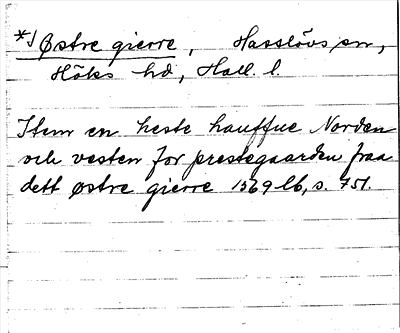 *) Østre gierre, Hasslövs sn,
Höks hd, Hall. l.
Item en heste hauffue Norden
och vesten for prestegaarden fraa
dett østre gierre 1569 lb, s. 751.